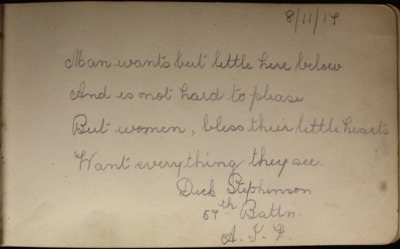 8/11/19
Man wants but little here below
And is not hard to please
But women, bless their little hearts
Want everything they see.
Dick Stephenson
57th Battn.
A. I. F.